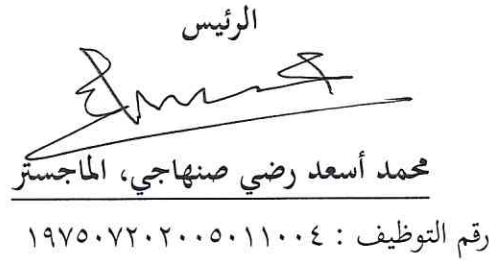 الرئيس
محمد أسعد رضي صنهاجي، الماجستر
رقم التوظيف : ١٩٧٥٠٧٢٠٢٠٠٥٠١١٠٠٤